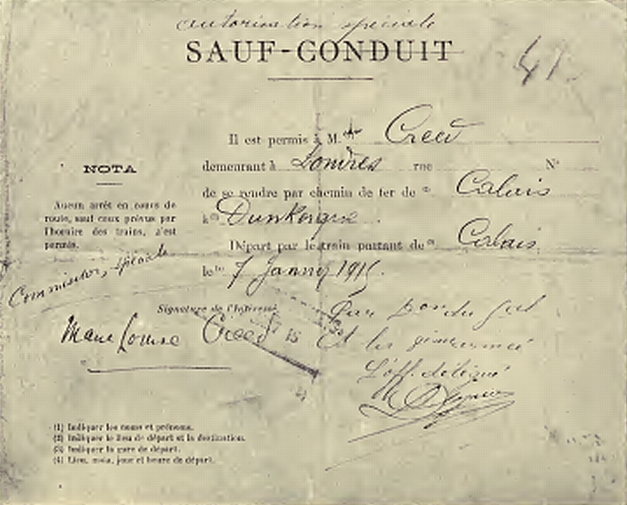 autorisation spéciale
SAUF-CONDUIT
41.
Il est permis à M. Creed
demeurant à Londres rue N°
de se rendre par chemin de fer de Calais
à Dunkerque.
Départ par le train partant de Calais
le 7 January 1915.
NOTA
Aucun arrêt en cours de
route, sauf ceux prévus par
l'horaire des trains, n'est
permis.
Commissaire, spéciale
Signature de l'Intéressé
Marie Louise Creed
Par du
Et la
L'off. délégué
(1) Indiquer les noms et prénoms.
(2) Indiquer le lieu de départ et la destination.
(3) Indiquer la gare de départ.
(4) Lieu, mois, jour et heure de départ.